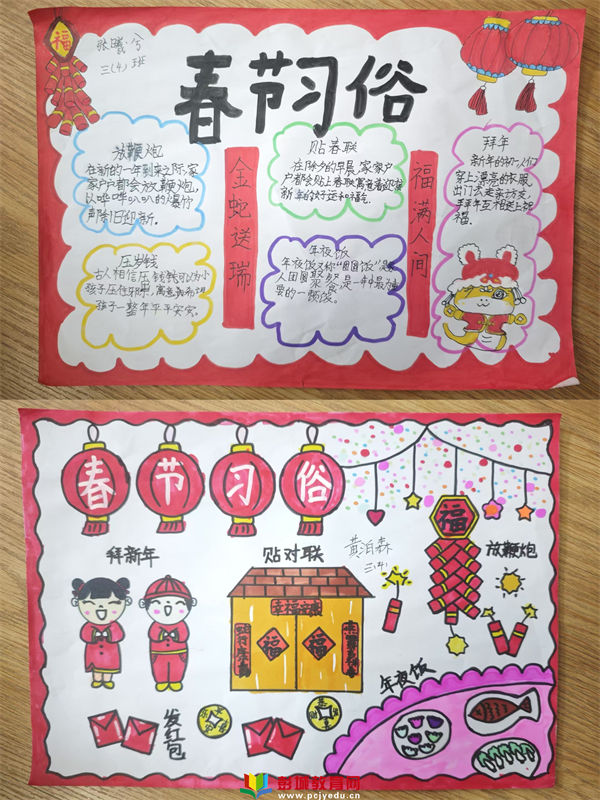 福
张曦兮
三(4)班
春节习俗
放鞭炮
在新的一年到来之际,家
家户户都会放鞭炮,
以哔哔叭叭的爆竹
声除旧迎新。
压岁钱
古人相信压岁钱可以为小
孩子压住邪祟,寓意着希望
孩子一整年平平安安。
金蛇送瑞
贴春联
在除夕的早晨,家家户
户都会贴上春联寓意着迎接
新年的好运和福气
年夜饭
年夜饭又称“团圆饭”
人团圆聚餐是一年中最为重
要的一顿饭。
福满人间
拜年
新年的初一人们
穿上漂亮的衣服
出门去走亲访友,
拜拜年互相送上祝
福。
春节习俗
福
拜新年
贴对联
黄泊森
三(4)
放鞭炮
幸福安康
福
福
年夜饭
发红包
彭城教育网
www.pcjyedu.cn